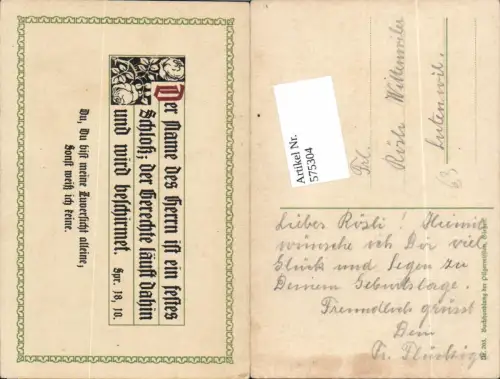 Der Name des Herrn ist ein festes
Schloß; der Gerechte läuft dahin
und wird beschirmet. Spr. 18, 10.
Du, Du bist meine Zuversicht alleine,
Sonst weiß ich keine.
Artikel Nr.
575304
Frl.
Rösli Wittenwiler
Lutenwil.
63
Lieber Rösli! Hiemit
wünsche ich Dir viel
Glück und Segen zu
Deinem Geburtstage.
Freundlich grüsst
Dein
Fr. Flückiger
Nr. 203. Buchhandlung der Pilgermission,